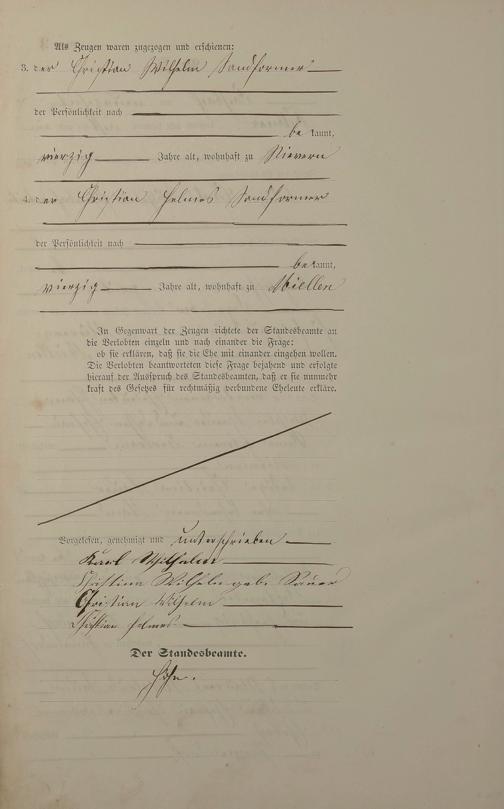 Als Zeugen waren zugezogen und erschienen:
3. der Christian Wilhelm Sandformer
der Persönlichkeit nach
be kannt,
vierzig Jahre alt, wohnhaft zu Nievern
4. der Christian Helmes Sandformer
der Persönlichkeit nach
be kannt,
vierzig Jahre alt, wohnhaft zu Miellen
In Gegenwart der Zeugen richtete der Standesbeamte an
die Verlobten einzeln und nach einander die Frage:
ob sie erklären, daß sie die Ehe mit einander eingehen wollen.
Die Verlobten beantworteten diese Frage bejahend und erfolgte
hierauf der Ausspruch des Standesbeamten, daß er sie nunmehr
kraft des Gesetzes für rechtmäßig verbundene Eheleute erkläre.
Vorgelesen, genehmigt und unterschrieben
Karl Wilhelm
Christina Wilhelm geb. Sauer
Christian Wilhelm
Christian Helmes
Der Standesbeamte.